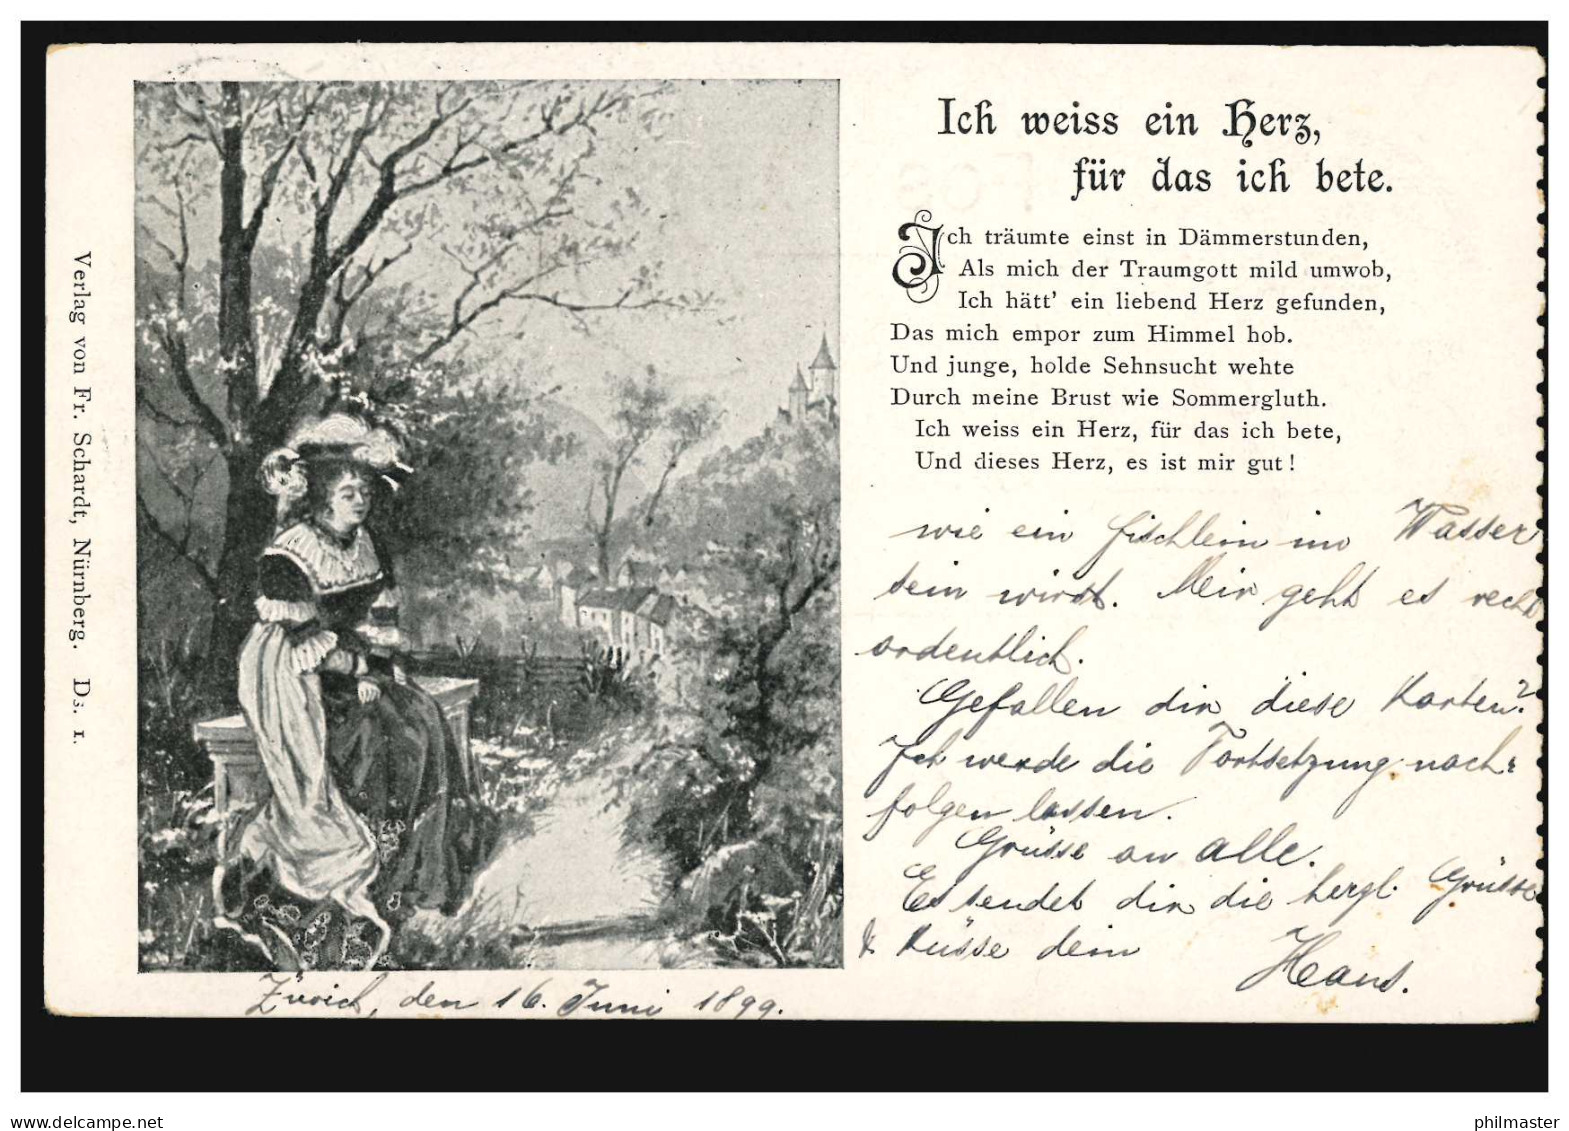 Ich weiss ein Herz,
für das ich bete.
Ich träumte einst in Dämmerstunden,
Als mich der Traumgott mild umwob,
Ich hätt' ein liebend Herz gefunden,
Das mich empor zum Himmel hob.
Und junge, holde Sehnsucht wehte
Durch meine Brust wie Sommergluth.
Ich weiss ein Herz, für das ich bete,
Und dieses Herz, es ist mir gut!
wie ein Fischlein im Wasser
sein wirst. Mein geht es recht
ordentlich.
Gefallen dir diese Karten?
Ich werde die Fortsetzung nach-
folgen lassen.
Grüsse an alle.
Es sendet dir die herzl. Grüsse
& Küsse dein
Hans.
Zürich, den 16. Juni 1899.
Verlag von Fr. Schardt, Nürnberg. Ds. 1.
www.delcampe.net
philmaster